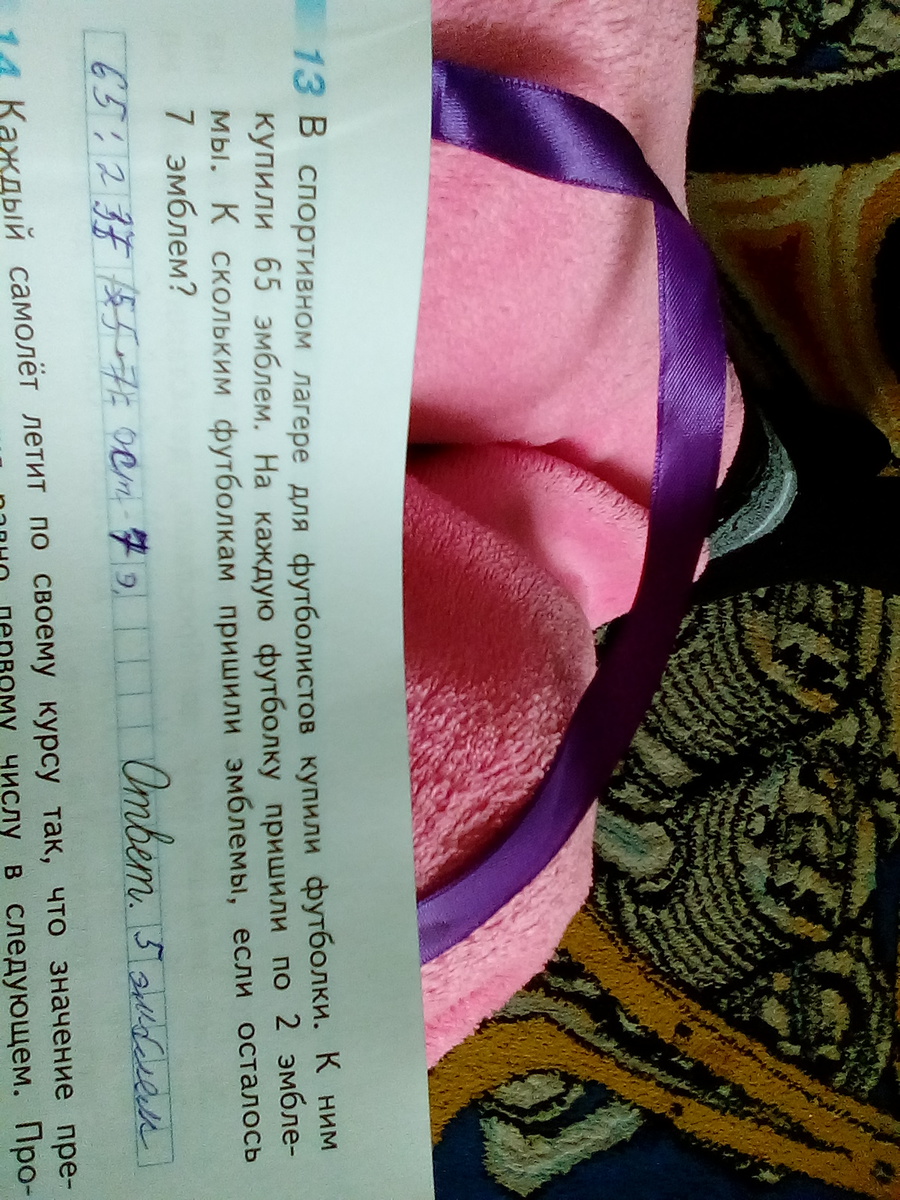 13 В спортивном лагере для футболистов купили футболки. К ним
купили 65 эмблем. На каждую футболку пришили по 2 эмбле-
мы. К скольким футболкам пришили эмблемы, если осталось
7 эмблем?
65 : 2 ост - 7 э. Ответ. 5 эмблем
14 Каждый самолёт летит по своему курсу так, что значение пре-
равно первому числу в следующем. Про-